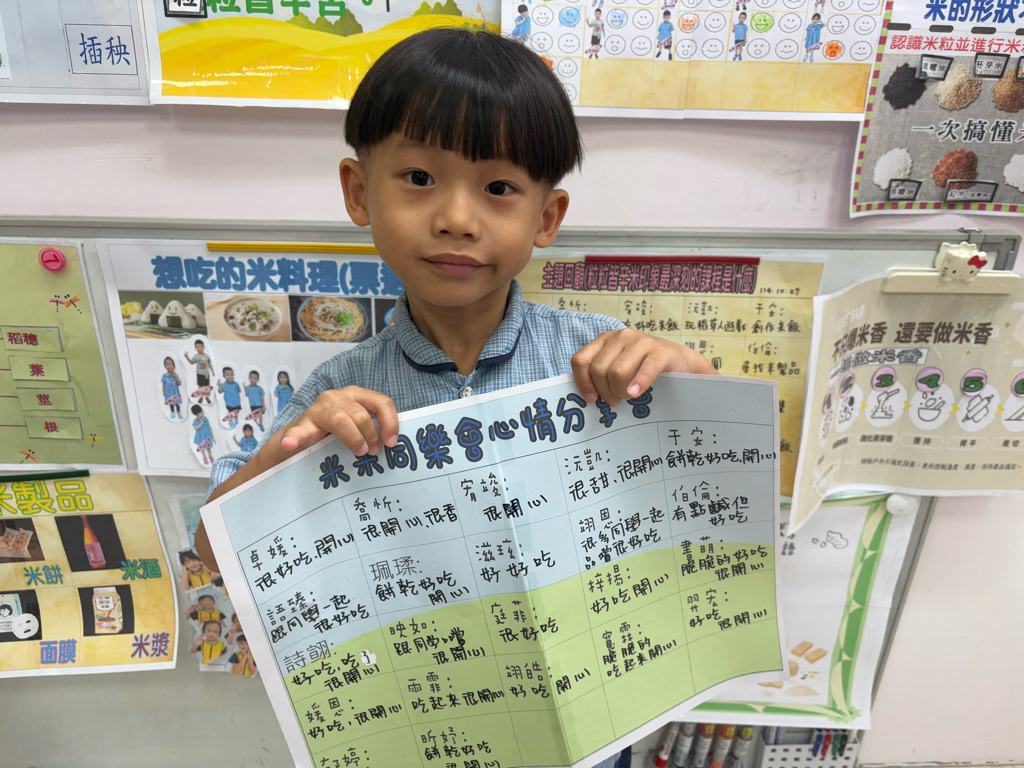 插秧
米的形狀
認識米粒並進行米
黑糯米
胚芽米
一次搞懂
想吃的米料理(票
主題回顧
114.10.27
好吃米飯
玩稻草人遊戲
創作米飯
伯倫:
尋找米製品
還要做米香
稻穗
葉
莖
根
米製品
米餅
米酒
面膜
米漿
米米同樂會心情分享會
卓媛:
很好吃、開心
喬忻:
很開心、很香
宥竣:
很開心
沅凱:
很甜、很開心
于安:
餅乾好吃、開心
語臻:
跟同學一起
很好吃
珮瑈:
餅乾好吃
開心
滋玹:
好好吃
翊恩:
很多同學一起
品嚐很好吃
伯倫:
有點鹹但
好吃
詩翮:
好吃、吃了
很開心
映如:
跟同學嚐
很開心
庭菲:
很好吃
梓揚:
好吃開心
書萌:
脆脆的好吃
很開心
媛恩:
好吃,很開心
雨霏:
吃起來很開心
翊皓:
好吃 開心
寬霖:
脆脆的
吃起來開心
羿宏:
好吃
很開心
婷:
昕妤:
餅乾好吃
很開心